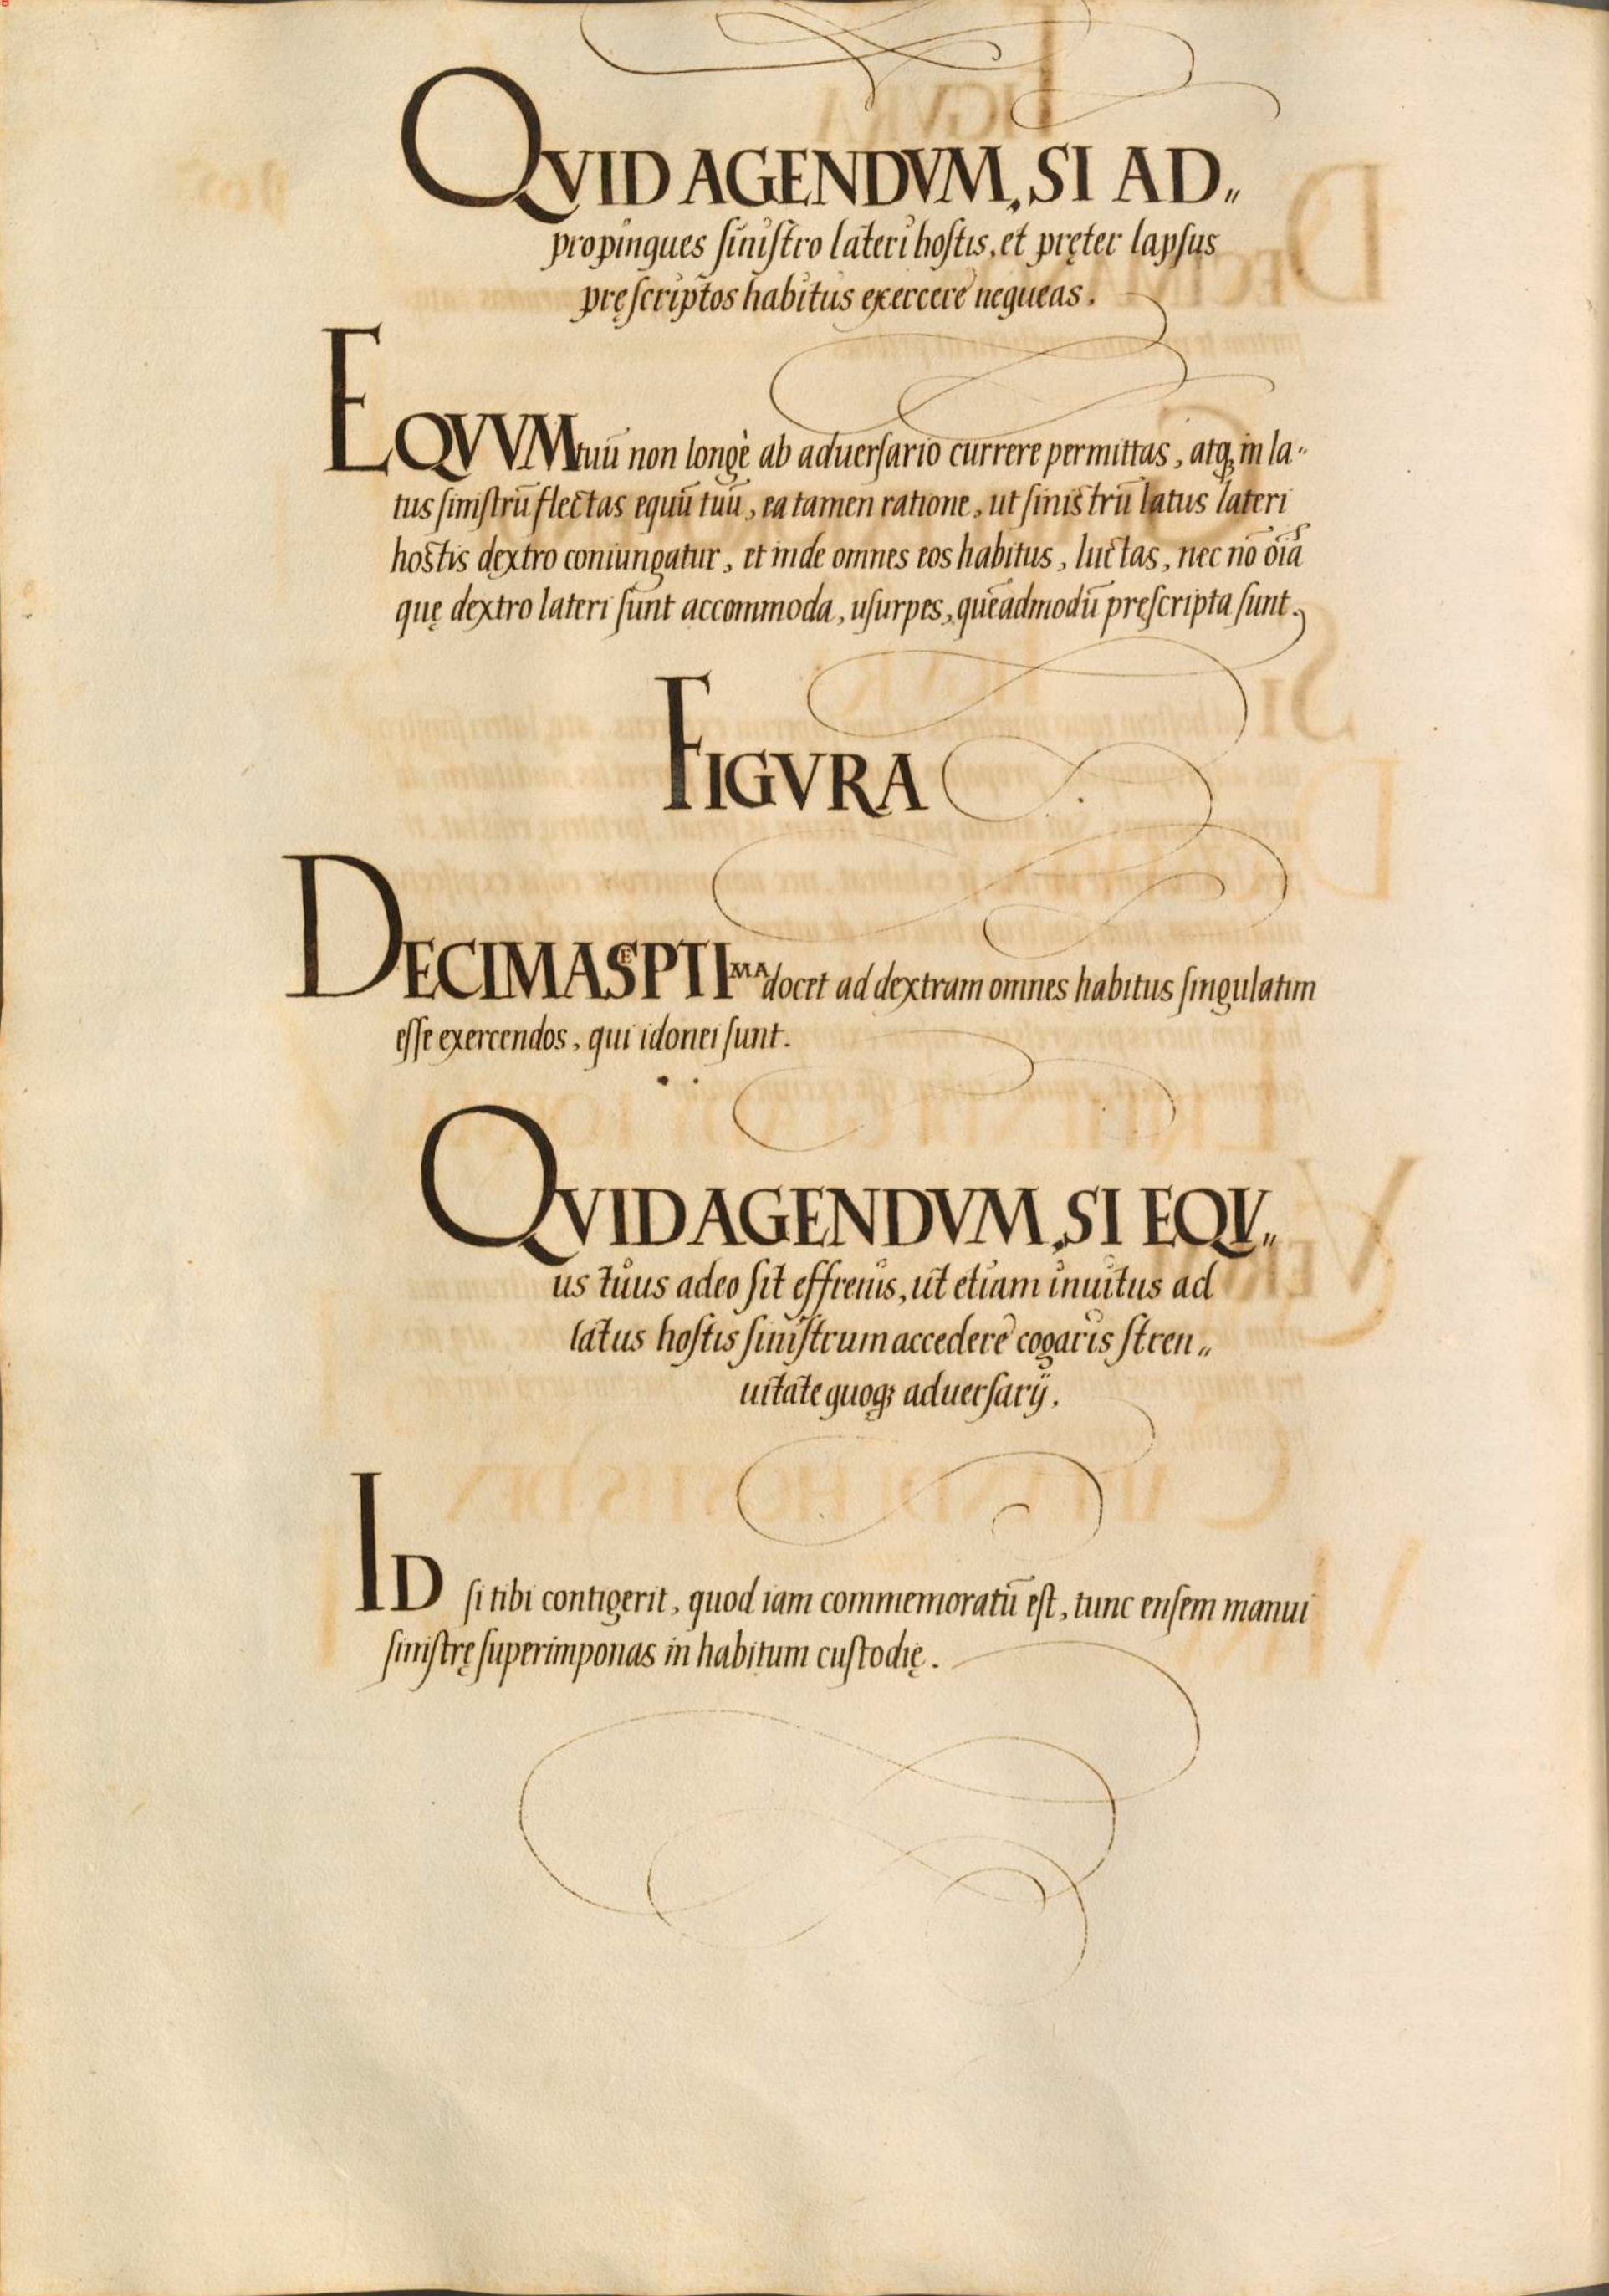 QVID AGENDVM, SI AD„
propinques ſiniſtro lateri hoſtis, et pręter lapſus
pręſcriptos habitus exercere nequeas.
EQVVM tuū non longè ab aduerſario currere permittas, atq; in la„
tus ſiniſtrū flectas equū tuū, ea tamen ratione, ut ſinistrū latus lateri
hostis dextro coniungatur, et inde omnes eos habitus, luctas, nec nō oīa
quę dextro lateri ſunt accommoda, uſurpes, quēadmodū pręſcripta ſunt.
FIGVRA
DECIMASEPTIMA docet ad dextram omnes habitus ſingulatim
eſſe exercendos, qui idonei ſunt.
QVID AGENDVM, SI EQV„
us tuus adeo ſit effrenis, ut etiam inuitus ad
latus hoſtis ſiniſtrum accedere cogaris ſtren„
uitate quoq; aduerſarÿ.
ID ſi tibi contigerit, quod iam commemoratū eſt, tunc enſem manui
ſiniſtrę ſuperimponas in habitum cuſtodię.